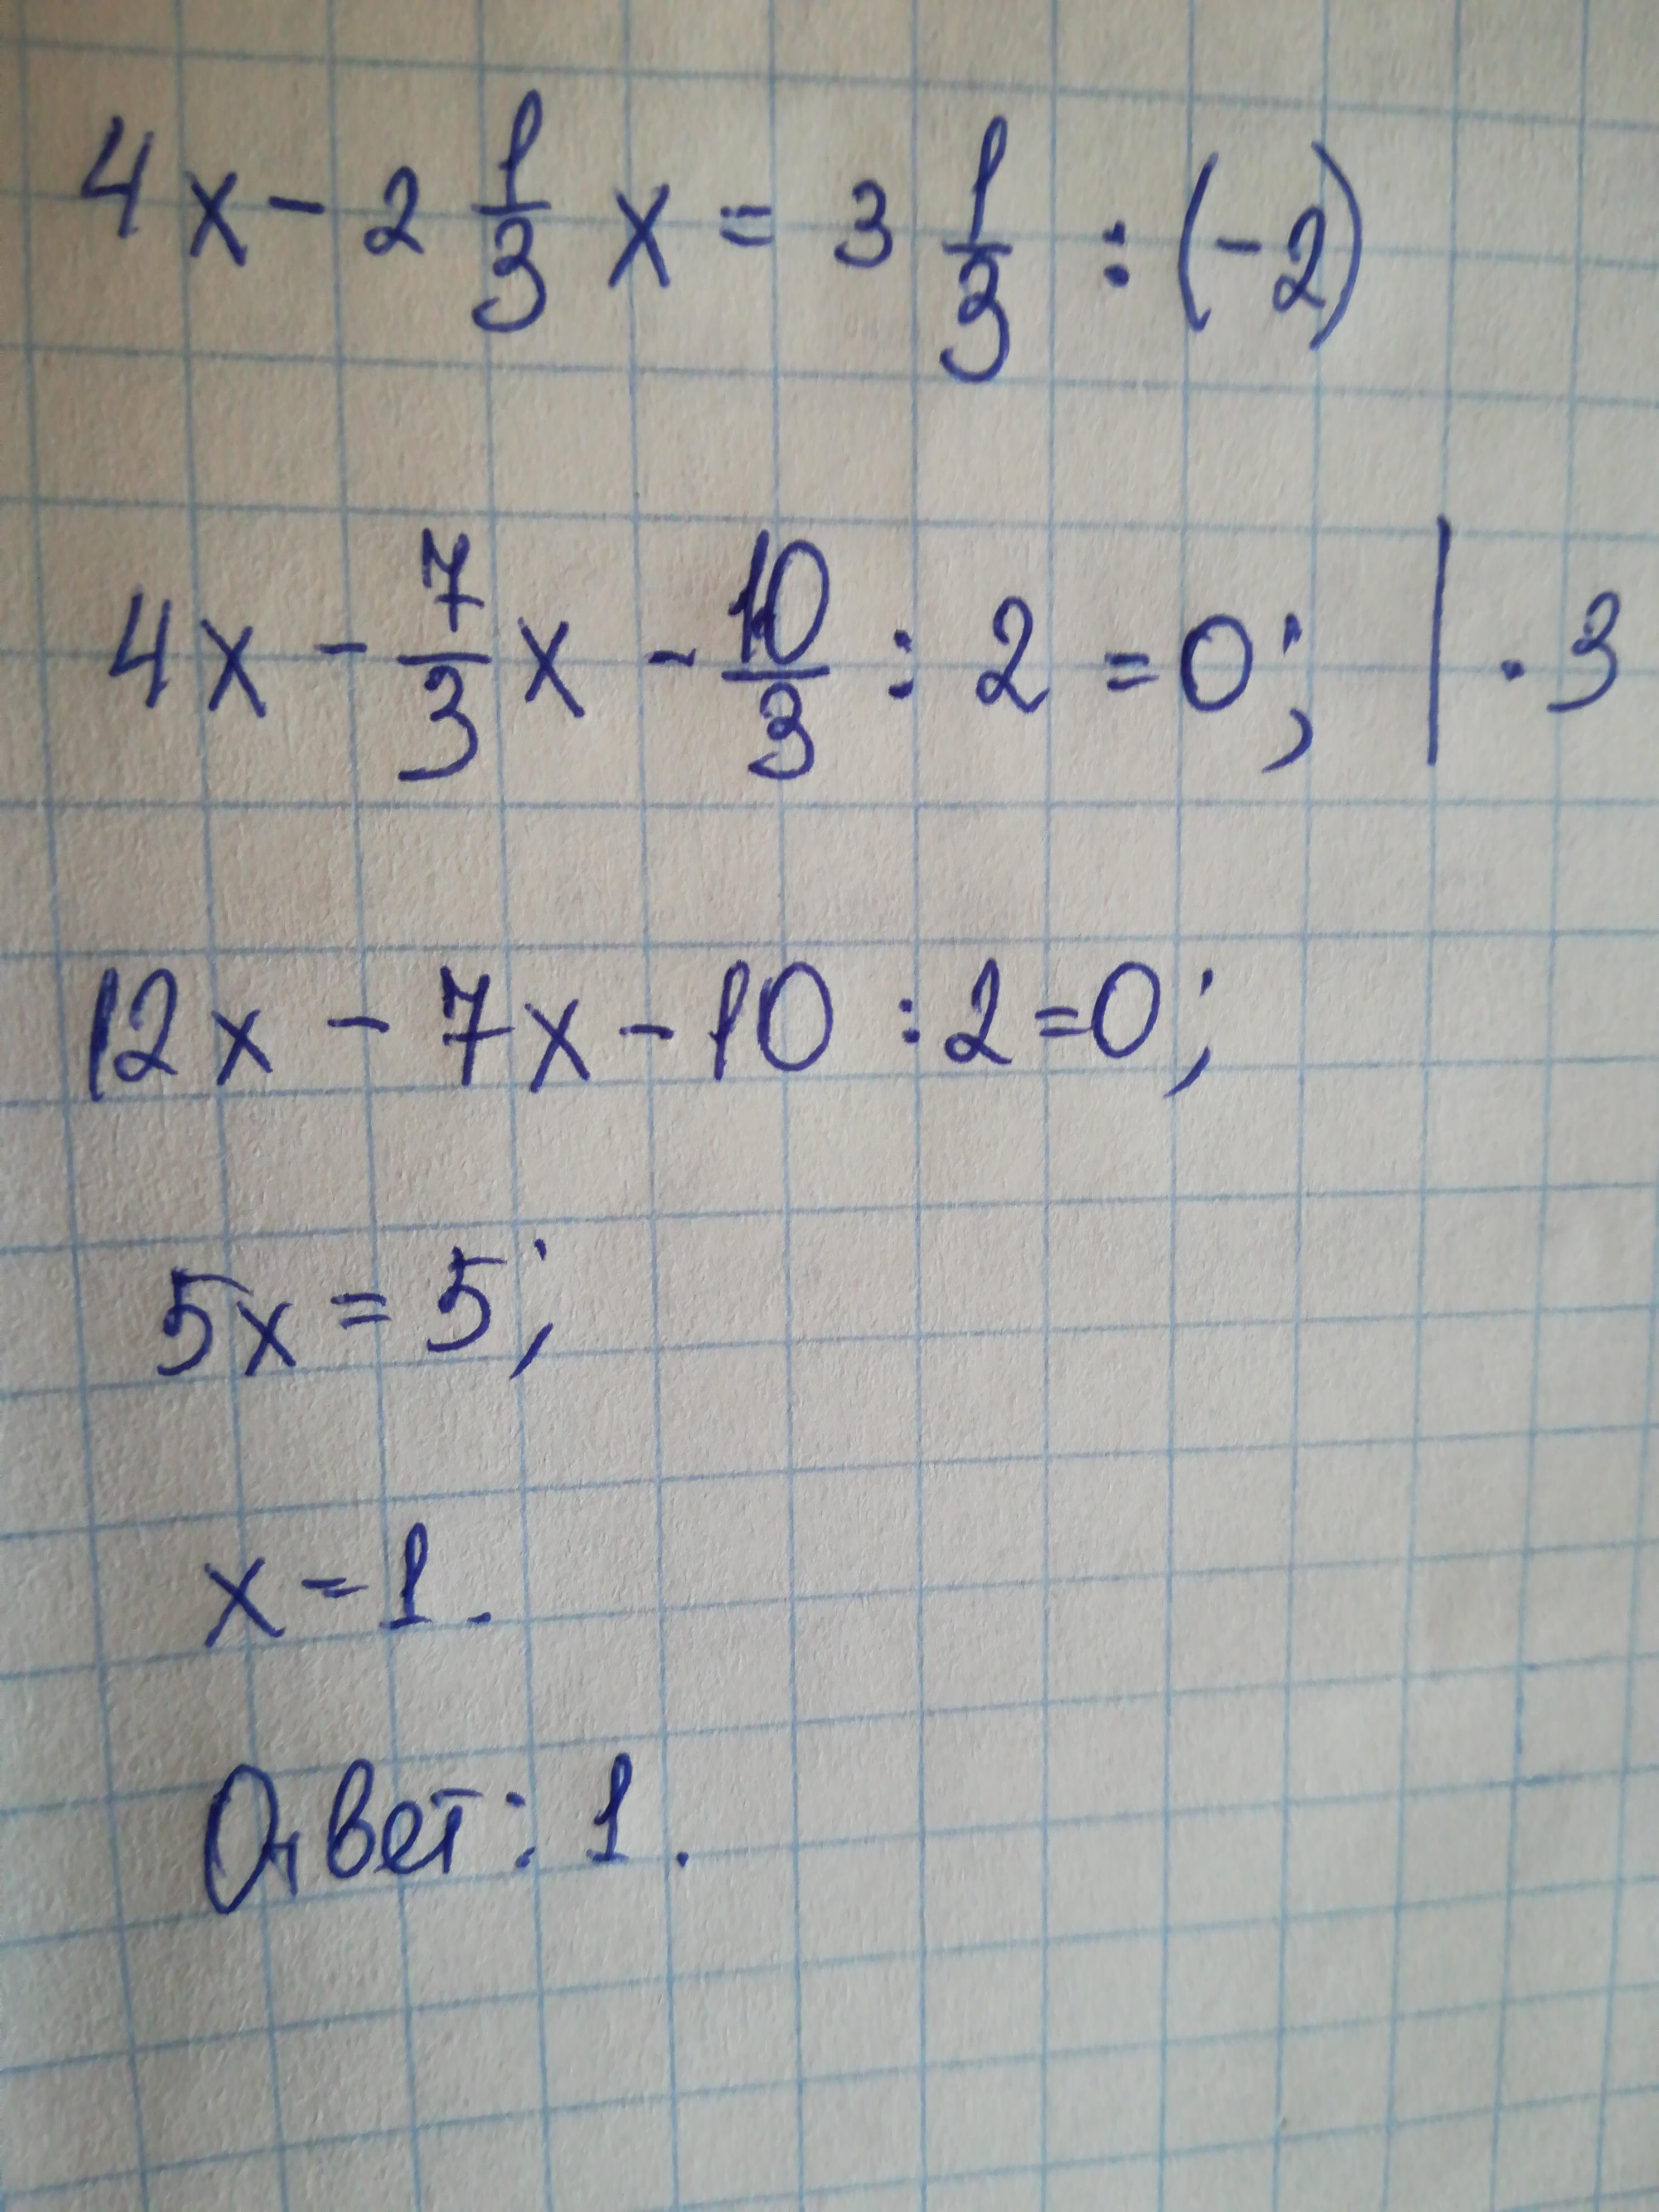 4x - 2 1/3 x = 3 1/3 : (-2)
4x - 7/3 x - 10/3 : 2 = 0; | · 3
12x - 7x - 10 : 2 = 0;
5x = 5;
x = 1.
Ответ: 1.